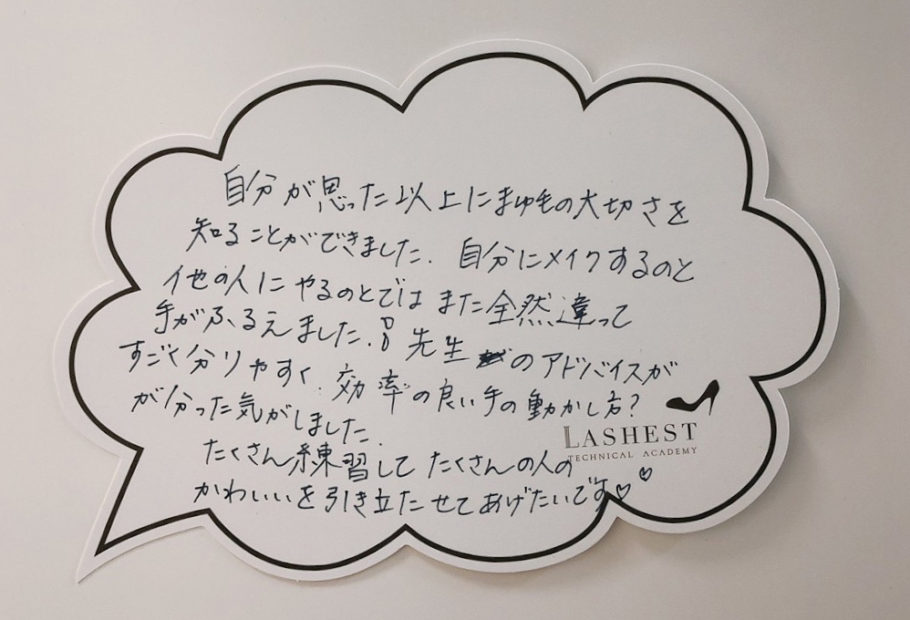 自分が思った以上にまゆ毛の大切さを
知ることができました. 自分にメイクするのと
他の人にやるのとではまた全然違って
手がふるえました. 先生のアドバイスが
すごく分りやすく. 効率の良い手の動かし方?
が分った気がしました.
LASHEST
TECHNICAL ACADEMY
たくさん練習してたくさんの人の
かわいいを引き立たせてあげたいです♡♡